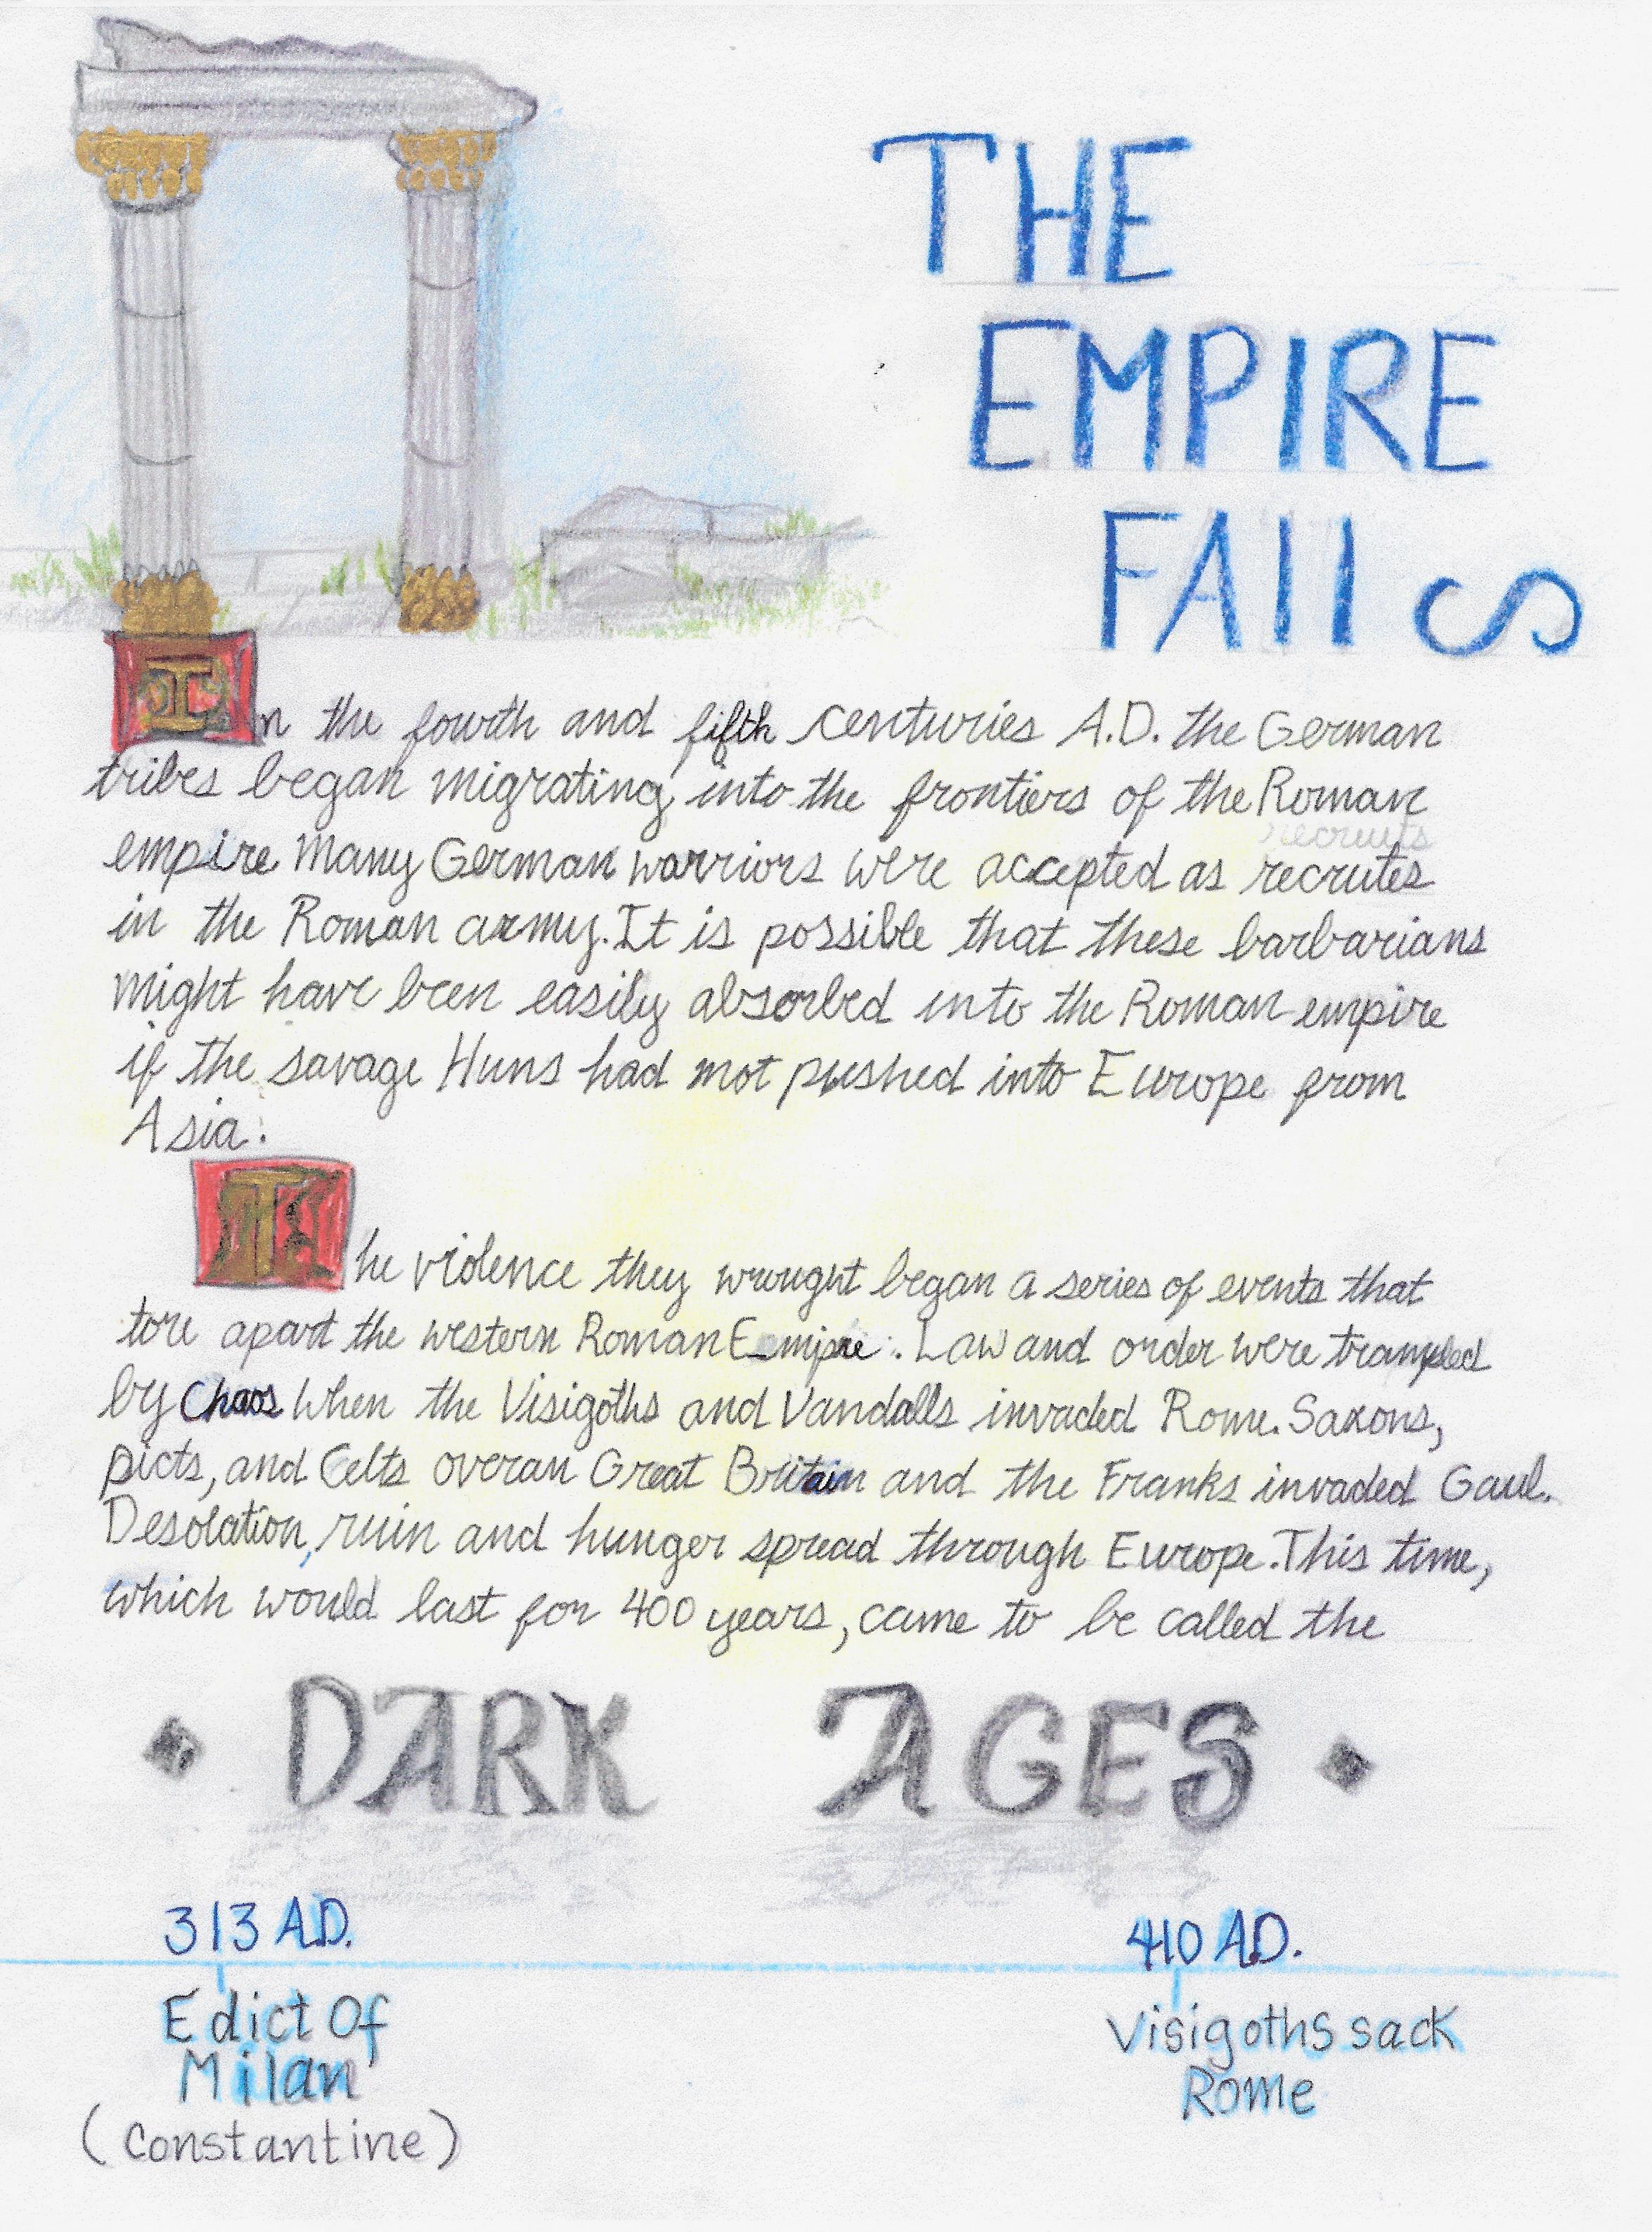 THE
EMPIRE
FAllS
In the fourth and fifth centuries A.D. the German
tribes began migrating into the frontiers of the Roman
recruits
empire many German warriors were accepted as recrutes
in the Roman army. It is possible that these barbarians
might have been easily absorbed into the Roman empire
if the savage Huns had not pushed into Europe from
Asia.
The violence they wrought began a series of events that
tore apart the western Roman Empire. Law and order were trampled
by chaos when the Visigoths and Vandalls invaded Rome. Saxons,
picts, and Celts overan Great Britain and the Franks invaded Gaul.
Desolation, ruin and hunger spread through Europe. This time,
which would last for 400 years, came to be called the
DARK AGES
313 A.D. 410 A.D.
Edict Of Visigoths sack
Milan Rome
(Constantine)